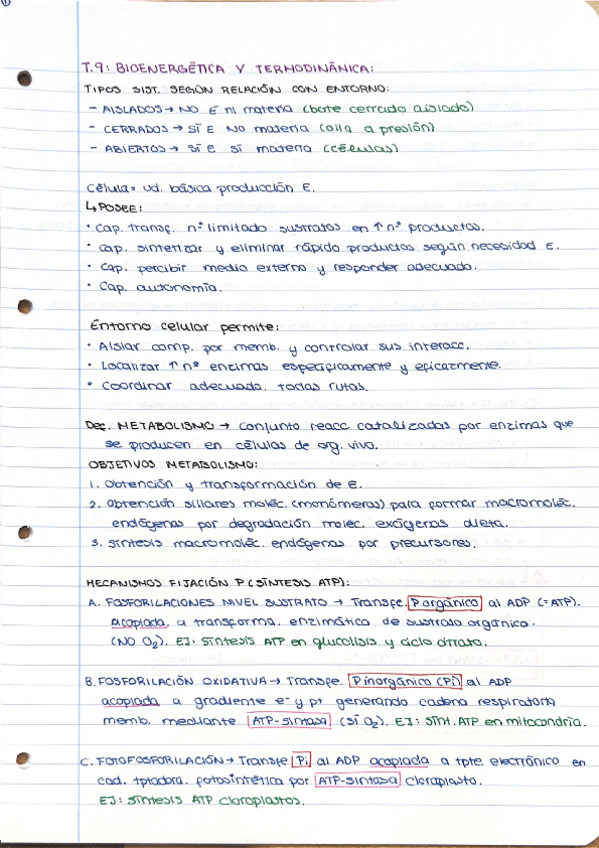 T.9: BIOENERGÉTICA Y TERMODINÁMICA:
TIPOS SIST. SEGÚN RELACIÓN CON ENTORNO:
- AISLADOS → NO E ni materia (bote cerrado aislado)
- CERRADOS → SÍ E NO materia (olla a presión)
- ABIERTOS → SÍ E sí materia (células)
Célula = ud. básica producción E.
↳ POSEE:
· Cap. transf. nº limitado sustratos en ↑ nº productos.
· Cap. sintetizar y eliminar rápido productos según necesidad E.
· Cap. percibir medio externo y responder adecuado.
· Cap. autonomía.
Entorno celular permite:
· Aislar comp. por memb. y controlar sus interacc.
· Localizar ↑ nº enzimas específicamente y eficazmente.
· Coordinar adecuado. todas rutas.
Def. METABOLISMO → conjunto reacc catalizadas por enzimas que
se producen en células de org. vivo.
OBJETIVOS METABOLISMO:
1. Obtención y transformación de E.
2. Obtención sillares moléc. (monómeros) para formar macromoléc.
endógenas por degradación moléc. exógenas dieta.
3. Síntesis macromoléc. endógenas por precursores.
MECANISMOS FIJACIÓN P (SÍNTESIS ATP):
A. FOSFORILACIONES NIVEL SUSTRATO → Transfe. P orgánico al ADP (=ATP).
Acoplada a transforma. enzimática de sustrato orgánico.
(NO O₂). EJ: Síntesis ATP en glucolisis y ciclo citrato.
B. FOSFORILACIÓN OXIDATIVA → Transfe. P inorgánico (Pi) al ADP
acoplada a gradiente e⁻ y p+ generando cadena respiratoria
memb. mediante ATP-sintasa (SÍ O₂). EJ: SÍNT. ATP en mitocondria.
C. FOTOFOSFORILACIÓN → Transfe Pi al ADP acoplada a tpte. electrónico en
cad. tptadora. fotosintética por ATP-sintasa cloroplasto.
EJ: Síntesis ATP cloroplastos.